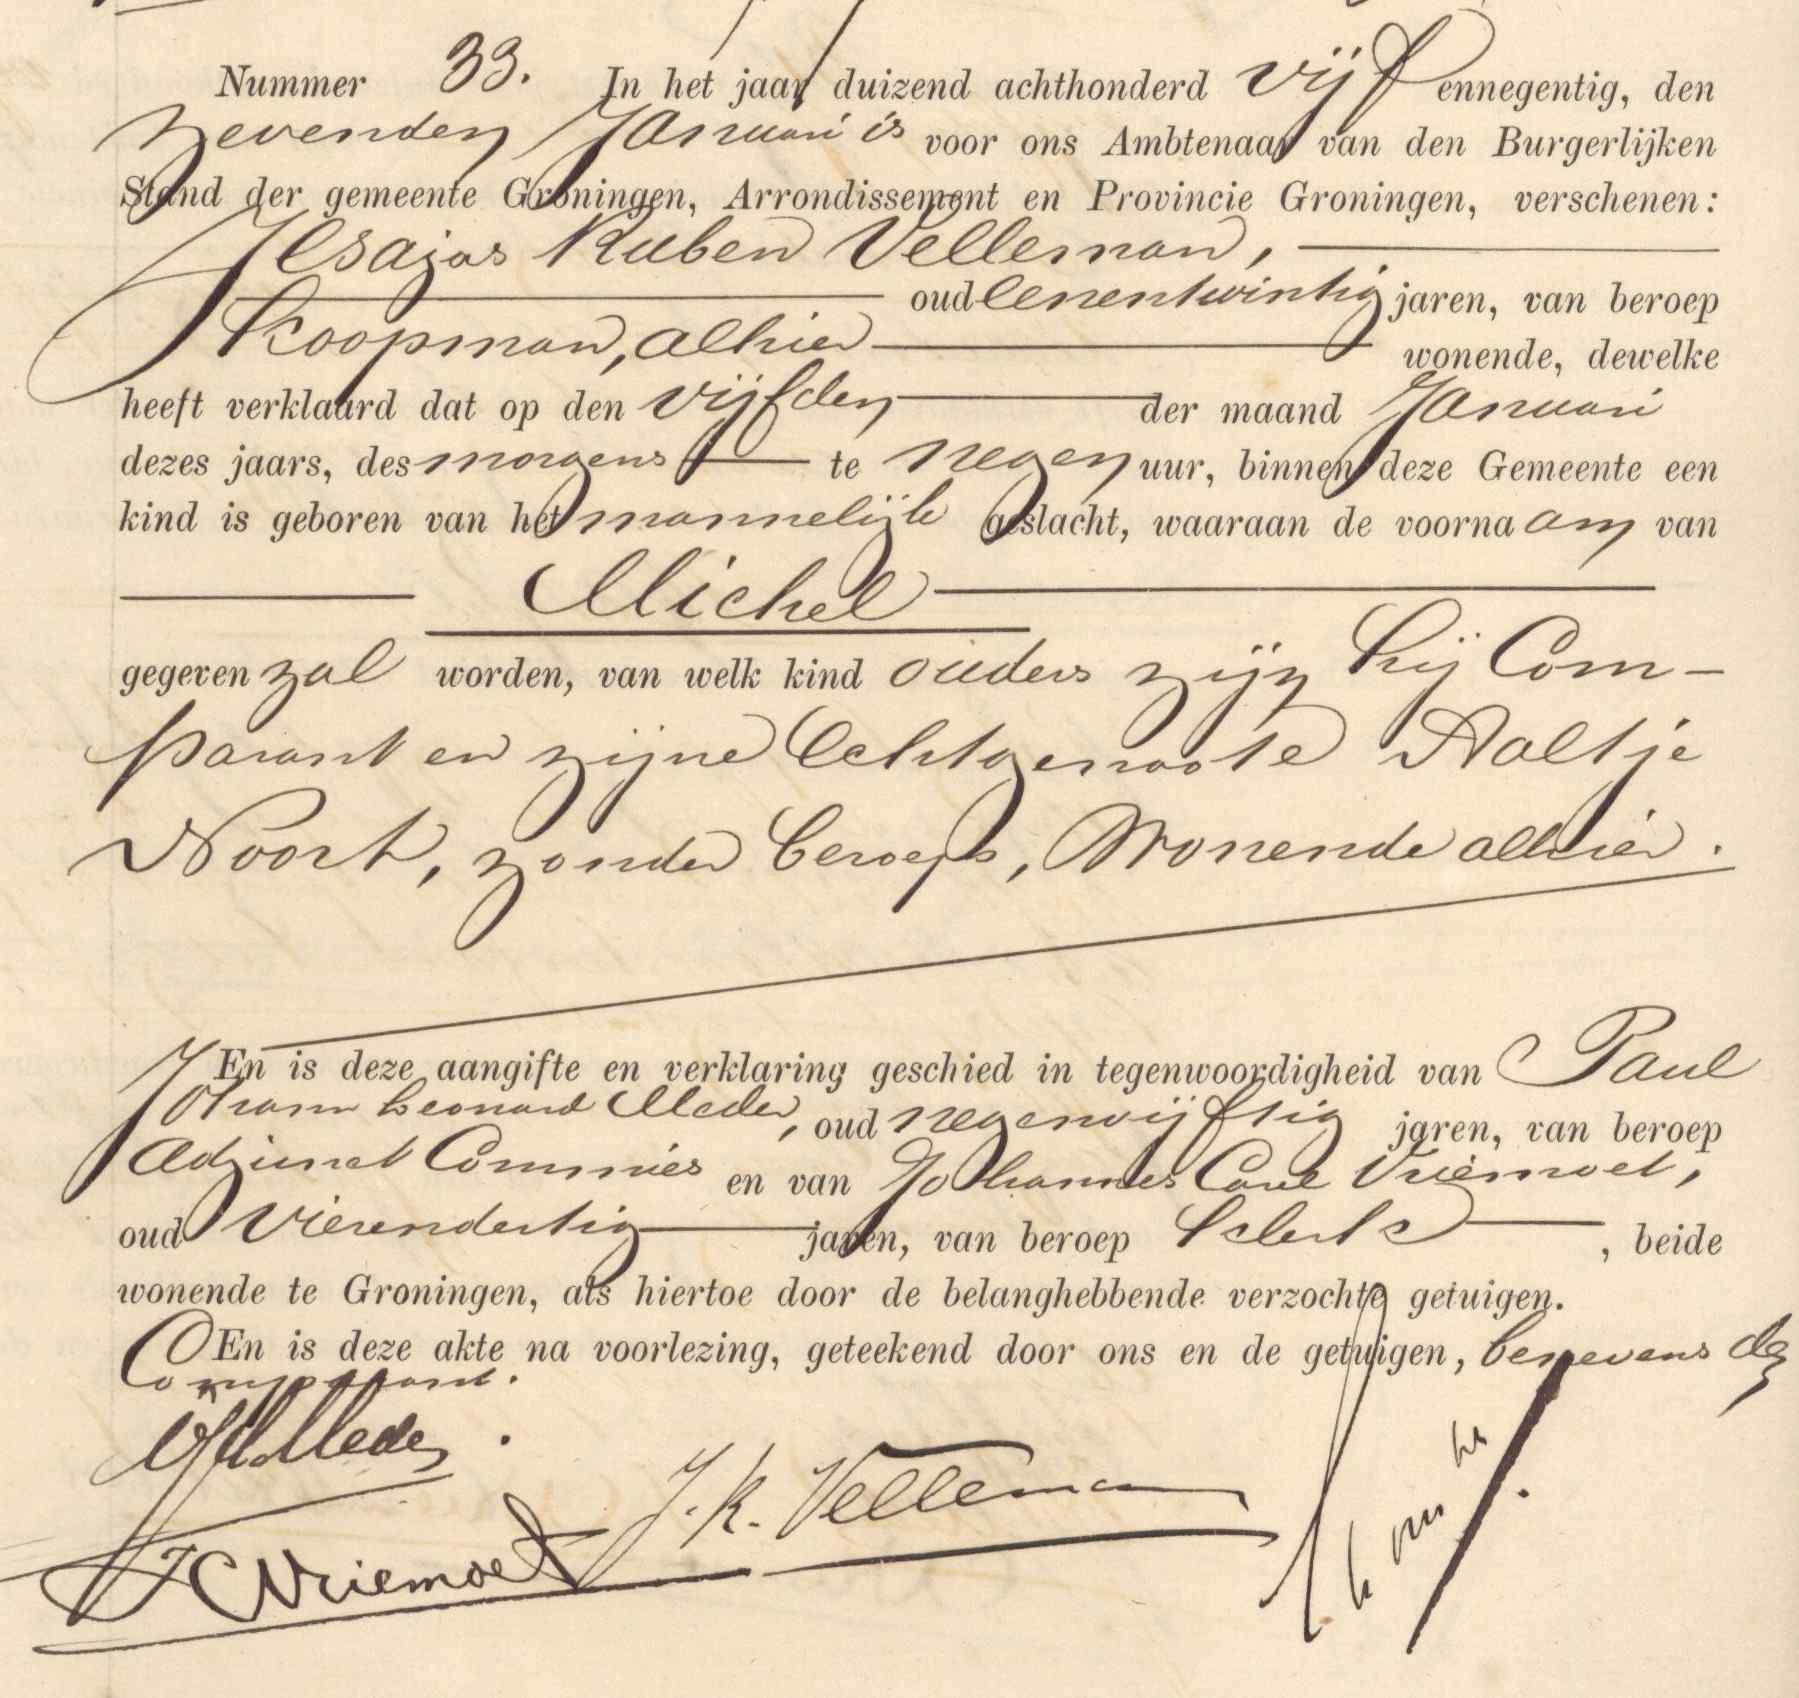 Nummer 33. In het jaar duizend achthonderd vijf ennegentig, den
zevenden Januari is voor ons Ambtenaar van den Burgerlijken
Stand der gemeente Groningen, Arrondissement en Provincie Groningen, verschenen:
Jesajas Ruben Velleman,
oud eenentwintig jaren, van beroep
Koopman, alhier wonende, dewelke
heeft verklaard dat op den vijfden der maand Januari
dezes jaars, des morgens te negen uur, binnen deze Gemeente een
kind is geboren van het mannelijk geslacht, waaraan de voornaam van
Michel
gegeven zal worden, van welk kind ouders zijn hij Com-
parant en zijne Echtgenoote Aaltje
Noort, zonder beroep, Wonende alhier.
En is deze aangifte en verklaring geschied in tegenwoordigheid van Paul
Johann Leonard Meder, oud negenvijftig jaren, van beroep
Adjunct Commies en van Johannes Carel Vriemoet,
oud Vierendertig jaren, van beroep Klerk, beide
wonende te Groningen, als hiertoe door de belanghebbende verzochte getuigen.
En is deze akte na voorlezing, geteekend door ons en de getuigen, benevens den
Comparant.
Meder
J. R. Velleman
J C Vriemoet